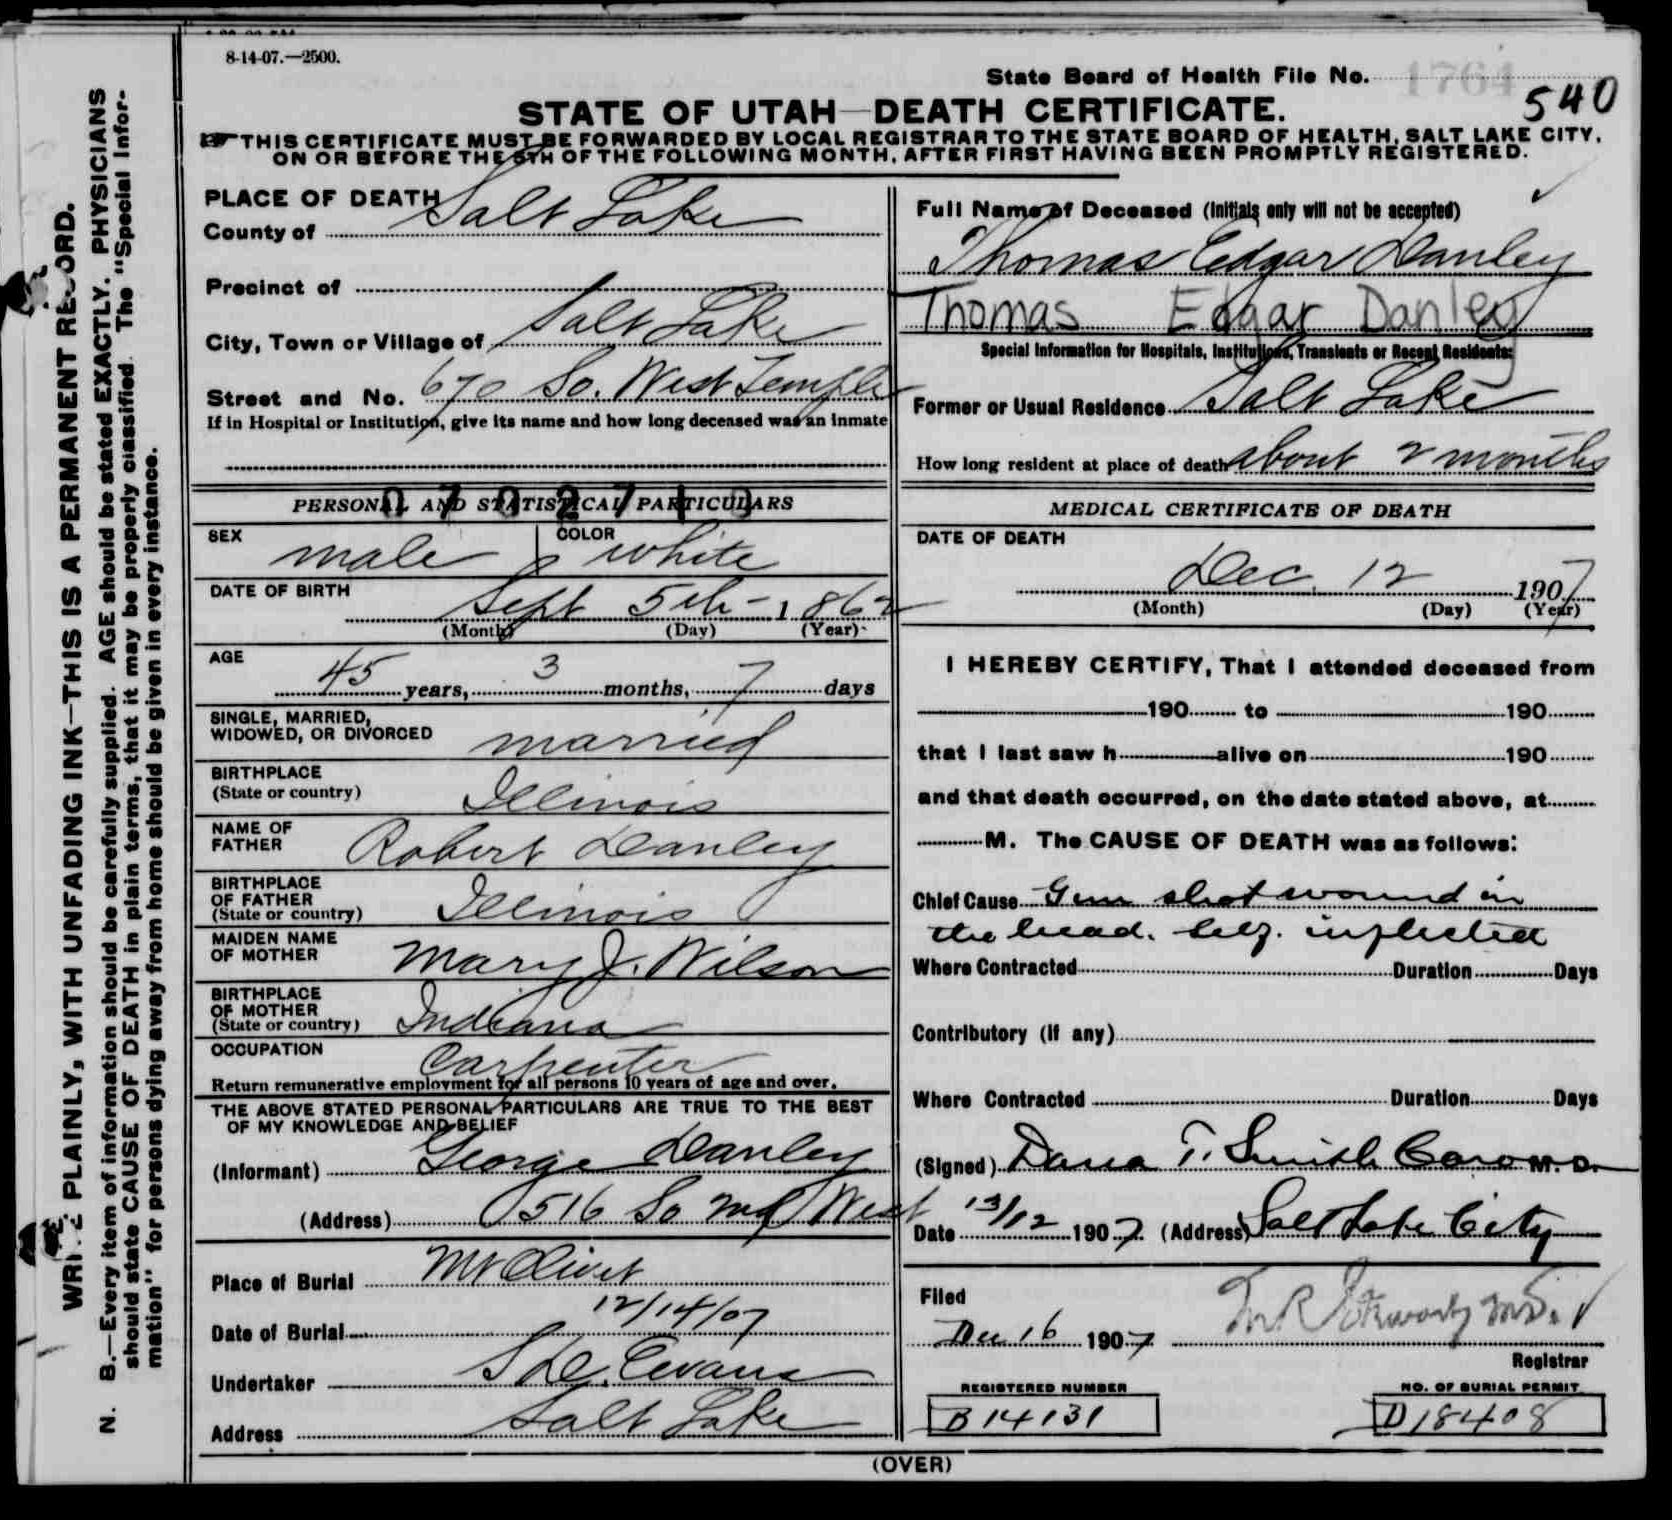 8-14-07.—2500.
State Board of Health File No. 1764
540
STATE OF UTAH—DEATH CERTIFICATE.
THIS CERTIFICATE MUST BE FORWARDED BY LOCAL REGISTRAR TO THE STATE BOARD OF HEALTH, SALT LAKE CITY,
ON OR BEFORE THE 5TH OF THE FOLLOWING MONTH, AFTER FIRST HAVING BEEN PROMPTLY REGISTERED.
WRITE PLAINLY, WITH UNFADING INK—THIS IS A PERMANENT RECORD.
N. B.—Every item of information should be carefully supplied. AGE should be stated EXACTLY. PHYSICIANS
should state CAUSE OF DEATH in plain terms, that it may be properly classified. The "Special Infor-
mation" for persons dying away from home should be given in every instance.
PLACE OF DEATH
County of Salt Lake
Precinct of
City, Town or Village of Salt Lake
Street and No. 670 So. West Temple
If in Hospital or Institution, give its name and how long deceased was an inmate
PERSONAL AND STATISTICAL PARTICULARS
0702710
SEX male COLOR white
DATE OF BIRTH Sept 5th - 1862
(Month) (Day) (Year)
AGE 45 years, 3 months, 7 days
SINGLE, MARRIED,
WIDOWED, OR DIVORCED married
BIRTHPLACE
(State or country) Illinois
NAME OF
FATHER Robert Danley
BIRTHPLACE
OF FATHER
(State or country) Illinois
MAIDEN NAME
OF MOTHER Mary J. Wilson
BIRTHPLACE
OF MOTHER
(State or country) Indiana
OCCUPATION Carpenter
Return remunerative employment for all persons 10 years of age and over.
THE ABOVE STATED PERSONAL PARTICULARS ARE TRUE TO THE BEST
OF MY KNOWLEDGE AND BELIEF
(Informant) George Danley
(Address) 516 So 2nd West
Place of Burial Mt Olivet
Date of Burial 12/14/07
Undertaker S D. Evans
Address Salt Lake
Full Name of Deceased (Initials only will not be accepted)
Thomas Edgar Danley
Thomas Edgar Danley
Special Information for Hospitals, Institutions, Transients or Recent Residents:
Former or Usual Residence Salt Lake
How long resident at place of death about 2 months
MEDICAL CERTIFICATE OF DEATH
DATE OF DEATH
Dec. 12 1907
(Month) (Day) (Year)
I HEREBY CERTIFY, That I attended deceased from
190 to 190
that I last saw h alive on 190
and that death occurred, on the date stated above, at
M. The CAUSE OF DEATH was as follows:
Chief Cause Gun shot wound in
the head. Self. inflicted
Where Contracted Duration Days
Contributory (if any)
Where Contracted Duration Days
(Signed) Dana T. Smith Coro M. D.
Date 13/12 1907 (Address) Salt Lake City
Filed
Dec 16 1907
Registrar
REGISTERED NUMBER
B 14131
NO. OF BURIAL PERMIT
D 18408
(OVER)